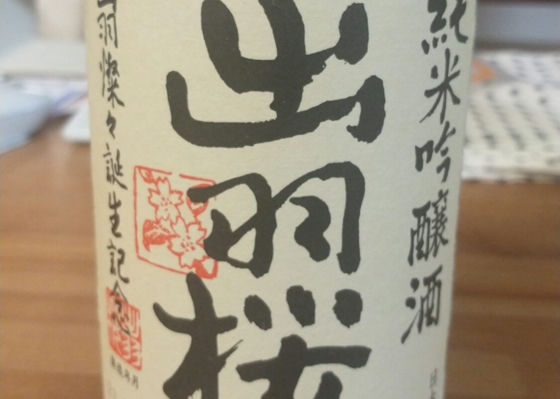 純米吟醸酒
出羽桜
羽燦々誕生記念